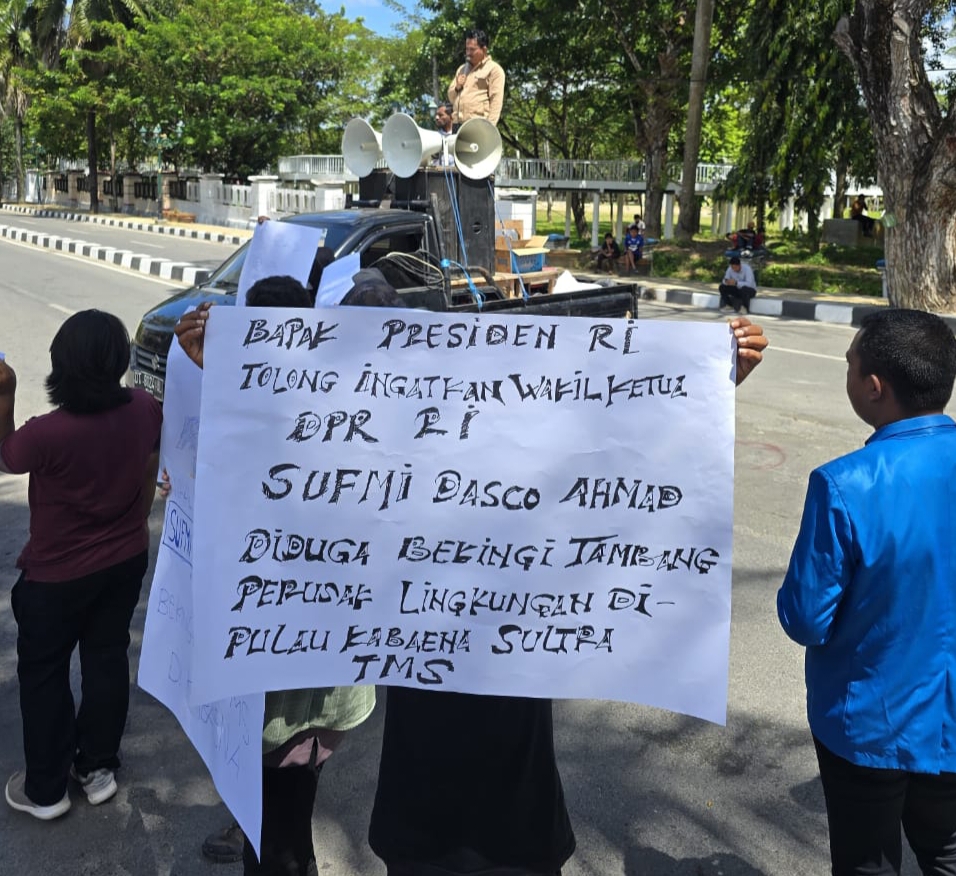 BAPAK PRESIDEN RI
TOLONG INGATKAN WAKIL KETUA
DPR RI
SUFMI DASCO AHMAD
DIDUGA BEKINGI TAMBANG
PERUSAK LINGKUNGAN DI-
PULAU KABAENA SULTRA
TMS
SUFMI